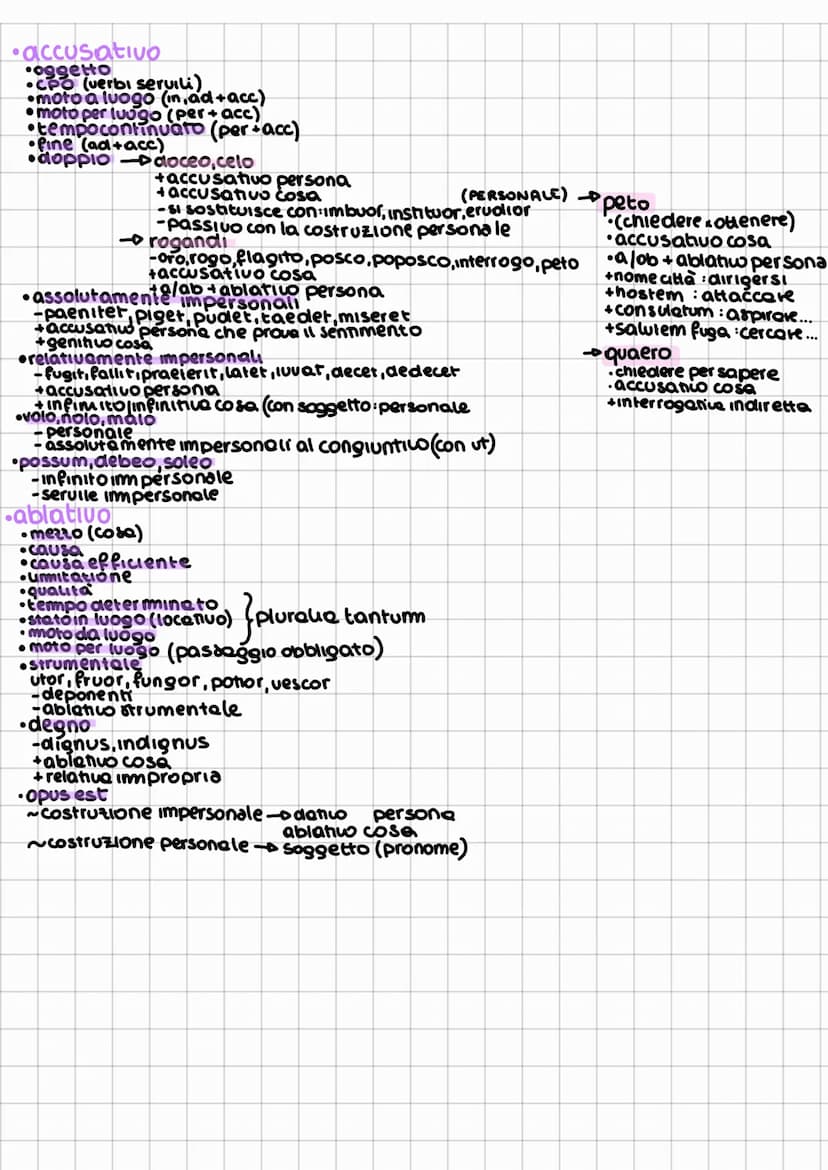 •accusativo
•oggetto
•CPO (verbi servili)
•moto a luogo (in,ad+acc)
•moto per luogo (per+acc)
•tempo continuato (per+acc)
•fine (ad+acc)
•doppio → doceo,celo
+accusativo persona
+accusativo cosa
-si sostituisce con:imbuor,instituor,erudior
-passivo con la costruzione personale
→ rogandi
-oro,rogo,flagito,posco,poposco,interrogo,peto
+accusativo cosa
+a/ab+ablativo persona
•assolutamente impersonali
-paenitet,piget,pudet,taedet,miseret
+accusativo persona che prova il sentimento
+genitivo cosa
•relativamente impersonali
-fugit,fallit,praeterit,latet,iuvat,decet,dedecet
+accusativo persona
+infinito/infinitiva cosa (con soggetto:personale
•volo,nolo,malo
-personale
-assolutamente impersonali al congiuntivo(con ut)
•possum,debeo,soleo
-infinito impersonale
-servile impersonale
(PERSONALE) → peto
•(chiedere x ottenere)
•accusativo cosa
•a/ob+ablativo persona
+nome città:dirigersi
+hostem:attaccare
+consulatum:aspirare...
+salutem fuga:cercare...
→quaero
•chiedere per sapere
•accusativo cosa
+interrogativa indiretta
•ablativo
•mezzo (cosa)
•causa
•causa efficiente
•limitazione
•qualità
•tempo determinato
•stato in luogo (locativo) } pluralia tantum
•moto da luogo
•moto per luogo (passaggio obbligato)
•strumentale
utor,fruor,fungor,potior,vescor
-deponenti
-ablativo strumentale
•degno
-dignus,indignus
+ablativo cosa
+relativa impropria
•opus est
~costruzione impersonale→dativo persona
ablativo cosa
~costruzione personale→soggetto (pronome)